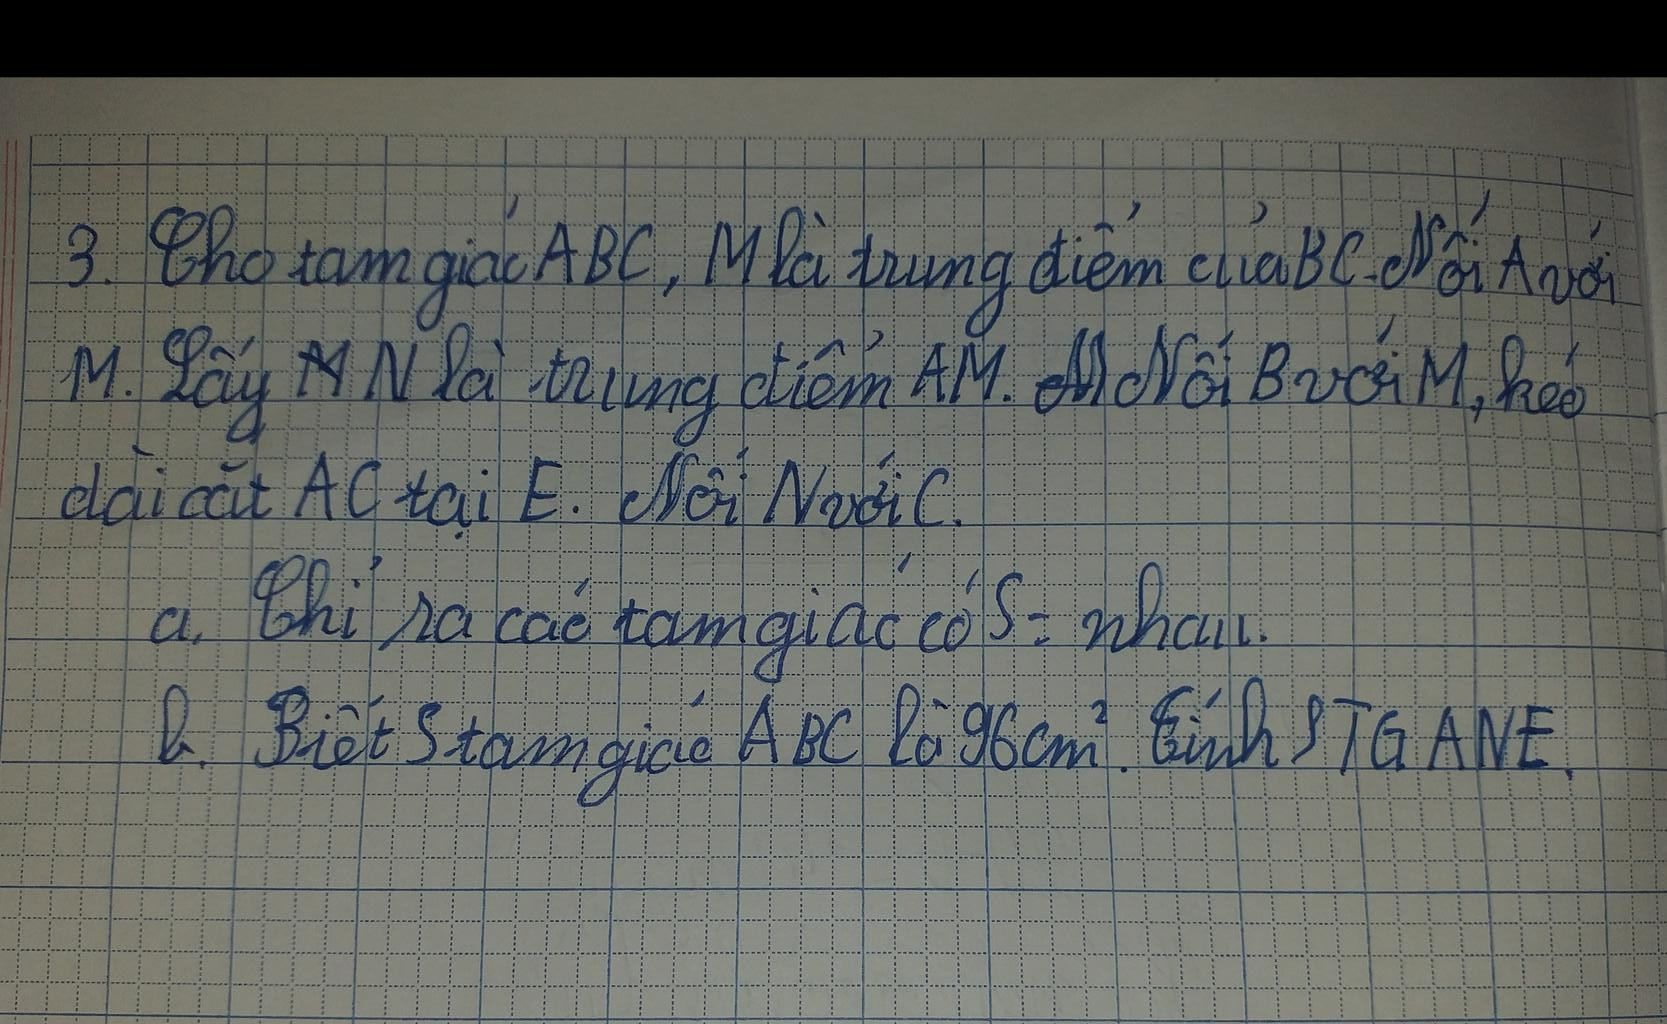 3. Cho tam giác ABC, M là trung điểm của BC. Nối A với
M. Lấy N là trung điểm AM. Nối B với M, kéo
dài cắt AC tại E. Nối N với C.
a. Chỉ ra các tam giác có S = nhau.
b. Biết S tam giác ABC là 96cm². Tính S TG ANE.